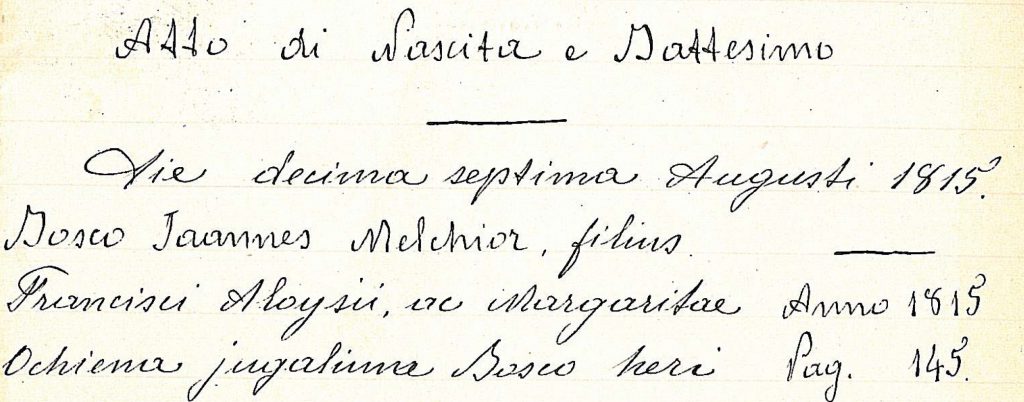 Atto di Nascita e Battesimo
Die decima septima Augusti 1815.
Bosco Joannes Melchior, filius
Francisci Aloysii, ac Margaritae Anno 1815
Ochiena jugalium Bosco heri Pag. 145.